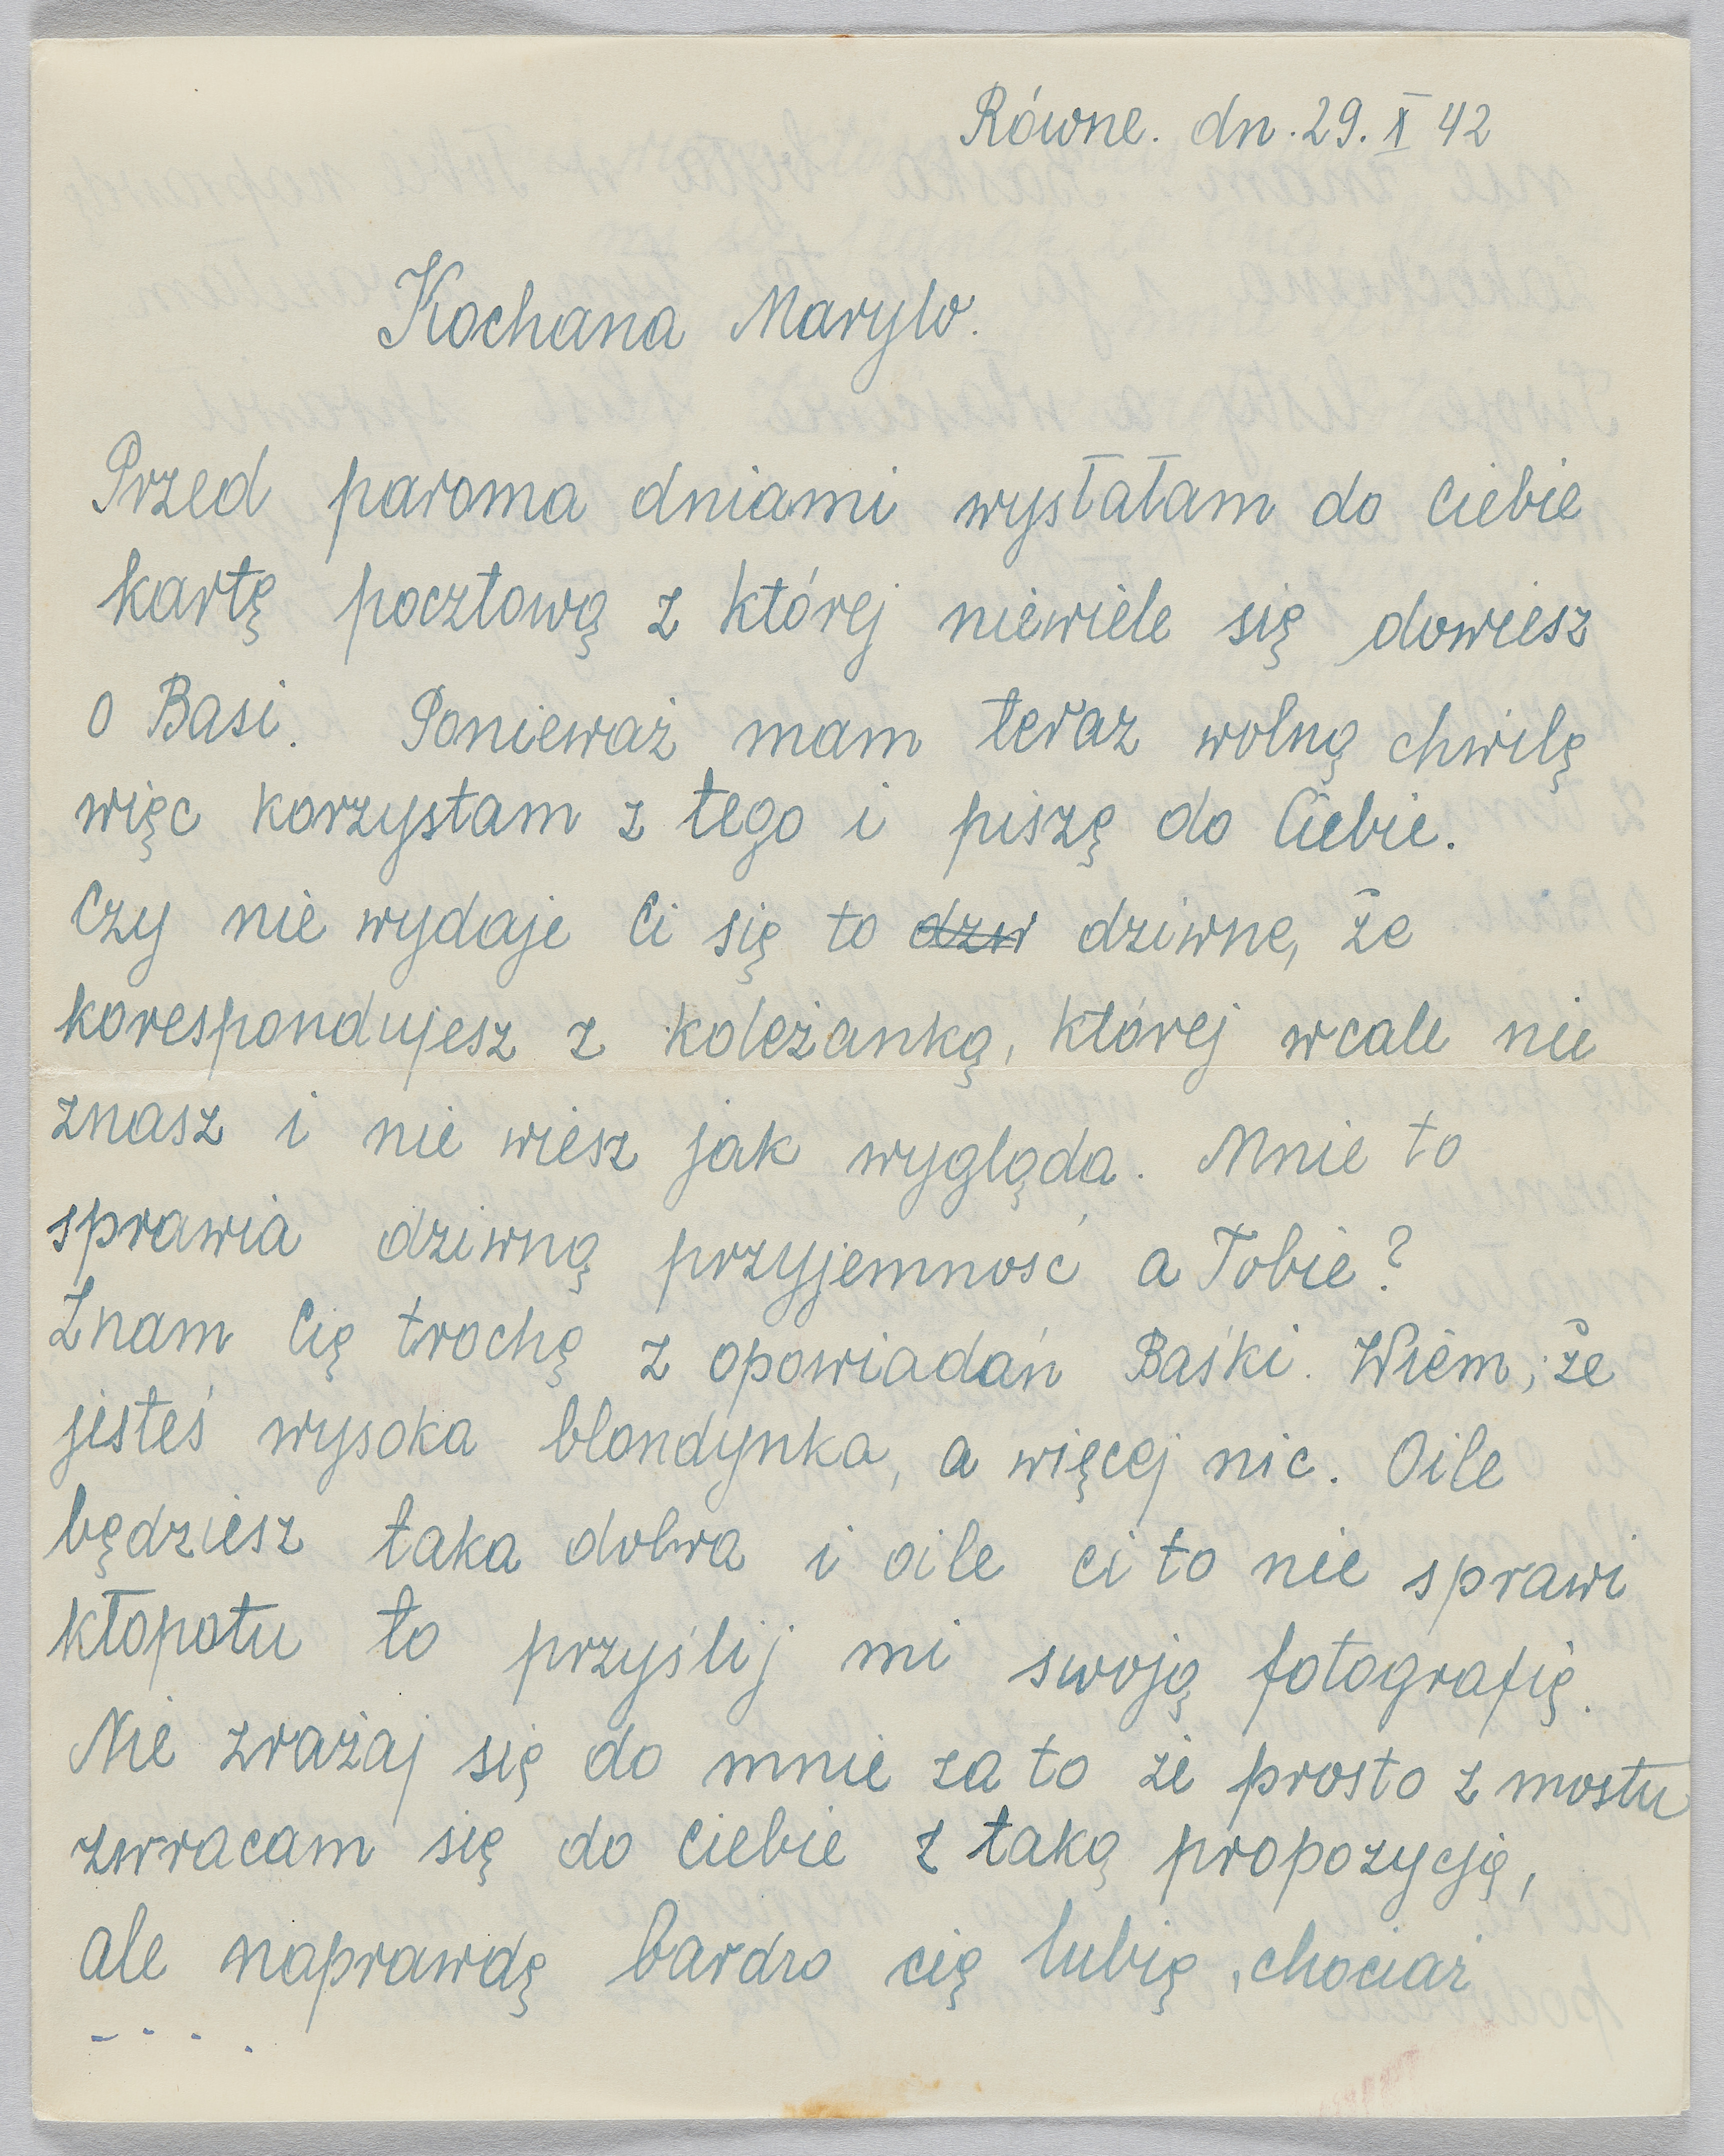 Równe. dn. 29. X 42
Kochana Marylo.
Przed paroma dniami wysłałam do Ciebie
kartę pocztową z której niewiele się dowiesz
o Basi. Ponieważ mam teraz wolną chwilę
więc korzystam z tego i piszę do Ciebie.
Czy nie wydaje Ci się to dzw dziwne, że
korespondujesz z koleżanką, której wcale nie
znasz i nie wiesz jak wygląda. Mnie to
sprawia dziwną przyjemność a Tobie?
Znam Cię trochę z opowiadań Baśki. Wiem, że
jesteś wysoka blondynka, a więcej nic. Oile
będziesz taka dobra i oile ci to nie sprawi
kłopotu to przyślij mi swoją fotografię.
Nie zrażaj się do mnie za to że prosto z mostu
zwracam się do Ciebie z taką propozycją,
ale naprawdę bardzo cię lubię, chociaż